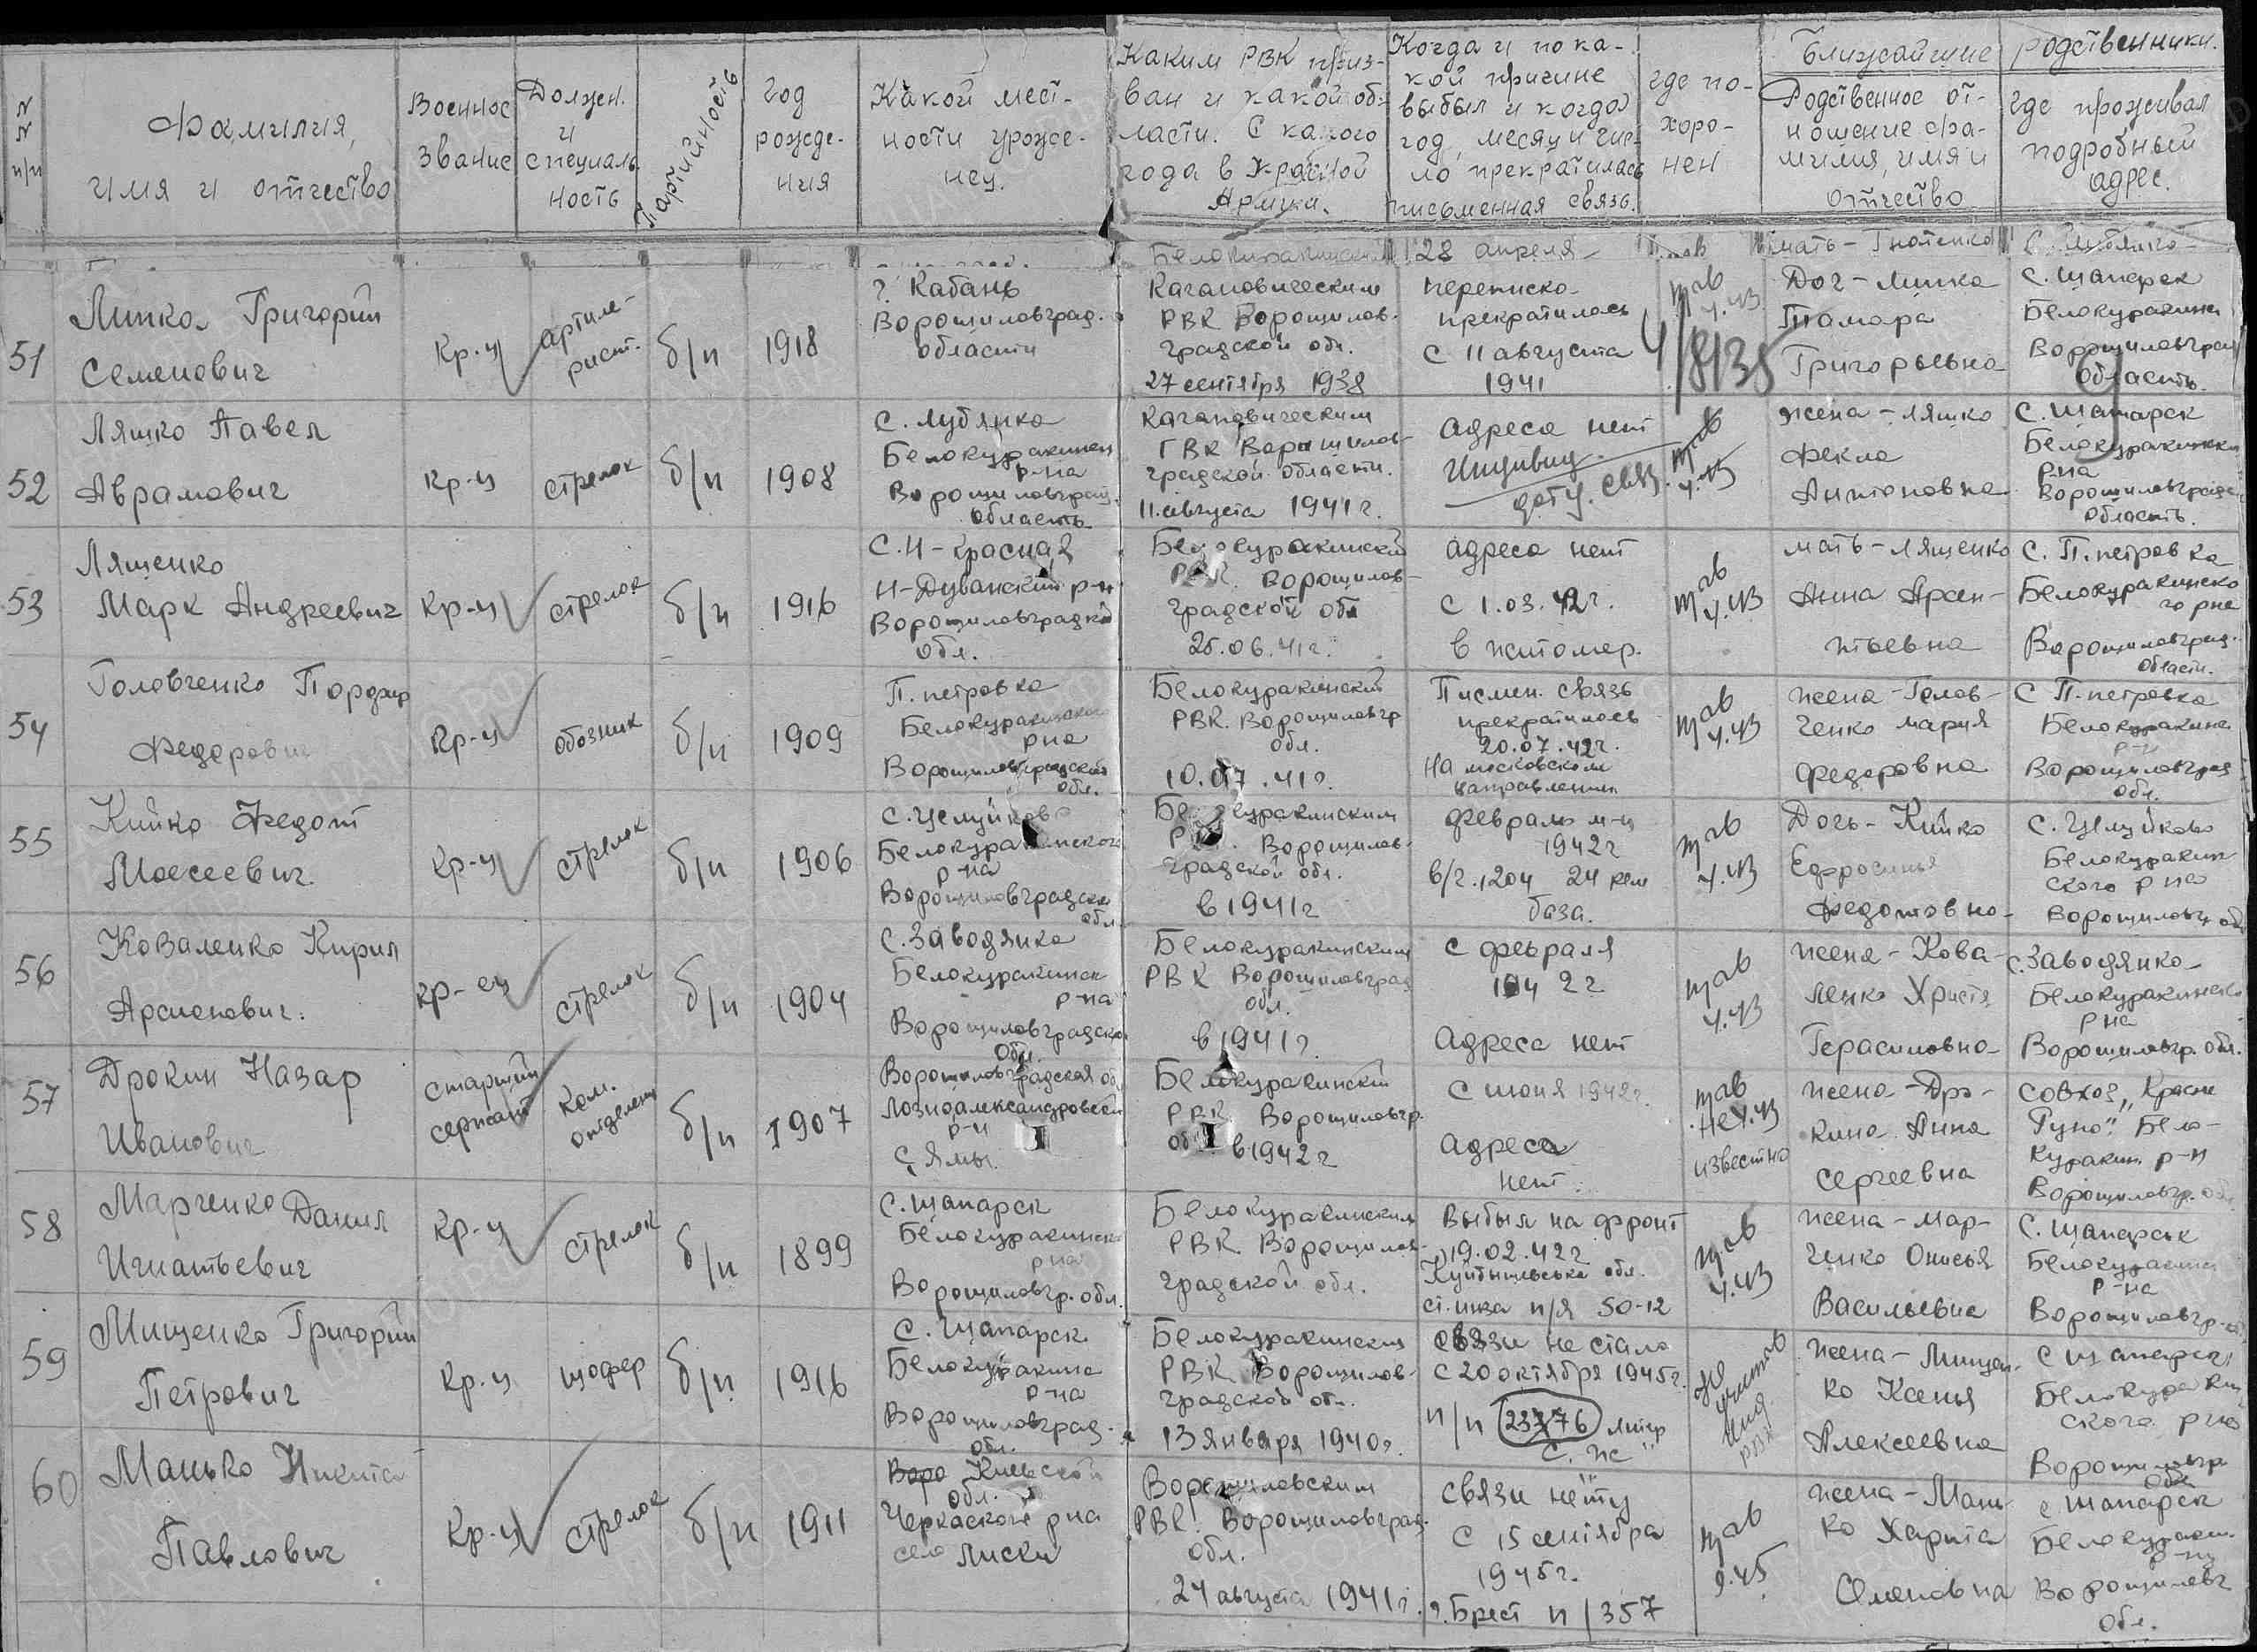 №№ п/п
Фамилия,
имя и отчество
Военное
звание
Должн.
и
специаль
ность
Партийность
Год
рожде-
ния
Какой мест-
ности уроже-
нец.
Каким РВК приз-
ван и какой об-
ласти. С какого
года в Красной
Армии.
Когда и по ка-
кой причине
выбыл и когда
год, месяц и чис-
ло прекратилась
письменная связь.
где по-
хоро-
нен
Ближайшие родственники.
Родственное от-
ношение фа-
милия, имя и
отчество
где проживал
подробный
адрес.
Белокуракинский
28 апреля
мать - Гнотенко
51
Липко Григорий
Семенович
Кр-ц
артиле-
рист.
б/п
1918
Кабань
Ворошиловград.
области
Кагановическим
РВК Ворошилов.
градской обл.
27 сентября 1938
переписка
прекратилась
с 11 августа
1941
4/8135
Доч - Липка
Тамара
Григорьевна
с. Шапарск
Белокуракинс
Ворошиловград
область.
52
Ляшко Павел
Аврамович
Кр-ц
стрелок
б/п
1908
с. Лубянка
Белокуракинск
р-на
Ворошиловград.
область.
Кагановическим
РВК Ворошилов-
градской области.
11 августа 1941 г.
Адреса нет
жена - Ляшко
Фекла
Антоновна
с. Шапарск
Белокуракински
р-на
Ворошиловградс
область.
53
Лященко
Марк Андреевич
Кр-ц
стрелок
б/п
1916
с. Н-Красна
Н-Дуванский р-н
Ворошиловградской
обл.
Белокуракинский
РВК. Ворошилов-
градской обл
25.06.41г.
адреса нет
с 1.03.42г.
в житомер.
мать - Лященко
Анна Арсен-
тьевна
с. П.петровка
Белокуракинско
го рна
Ворошиловград.
области.
54
Головченко Порфир
Федорович
Кр-ц
обозник
б/п
1909
П.петровка
Белокуракинского
рна
Ворошиловградской
обл.
Белокуракинский
РВК. Ворошиловгр
обл.
10.07.41г.
Писмен. связь
прекратилось
20.07.42г.
на московском
направлении
жена - Голов-
ченко мария
Федоровна
с П.петровка
Белокуракинс
р-н
Ворошиловград
обл.
55
Кийко Федот
Моесеевич
Кр-ц
стрелок
б/п
1906
с. Целуйково
Белокуракинского
р-на
Ворошиловградской
обл.
Белокуракинским
РВК. Ворошилов-
градской обл.
в 1941г
февраль м-ц
1942г
в/ч.1204 24 рем
база.
Дочь - Кийко
Ефросинья
Федотовна
с. Целуйково
Белокуракин
ского рна
56
Коваленко Кирил
Арсиенович.
Кр-ец
стрелок
б/п
1904
с. Заводянка
Белокуракинск
р-на
Ворошиловградской
обл.
Белокуракинским
РВК Ворошиловград
обл.
в 1941г.
с февраля
1942г
Адреса нет
жена - Кова-
ленко Христя
Герасимовна
с. Заводянка
Белокуракинско
рна
Ворошиловгр. обл.
57
Дрокин Назар
Иванович
Старший
сержант
ком.
отделен
б/п
1907
Ворошиловградская обл
Лозноалександровский
р-н
с. Ямы.
Белокуракинский
РВК Ворошиловгр.
обл. в 1942г
с июня 1942г.
Адреса
нет.
не
известно
жена - Дро-
кина Анна
Сергеевна
совхоз „Красне
Руно". Бело-
куракин. р-н
Ворошиловгр. обл.
58
Марченко Данил
Игнатьевич
Кр-ц
стрелок
б/п
1899
с. Шапарск
Белокуракинско
рна
Ворошиловгр. обл.
Белокуракинским
РВК. Ворошилов-
градской обл.
Выбыл на фронт
19.02.42г
Куйбишвська обл.
ст. инза п/я 50-12
жена - Мар-
ченко Онисья
Васильевна
с. Шапарськ
Белокуракин
р-на
Ворошиловгр-об
59
Мищенко Григорий
Петрович
Кр-ц
шофер
б/п
1916
с. Шапарск
Белокуракинс
р-на
Ворошиловград.
обл.
Белокуракинским
РВК Ворошилов-
градской обл.
13 января 1940г.
связи не стало
с 20 октября 1945г.
п/п 23776 литер
жена - Мищен-
ко Ксенья
Алексеевна
с Шапарск
Белокуракин
ского рна
Ворошиловгр
обл
60
Манько Никита
Павлович
Кр-ц
стрелок
б/п
1911
Воро Киевской
обл.
Черкаского рна
село Лиски
Ворошиловским
РВК. Ворошиловград.
обл.
24 августа 1941г.
связи нету
с 15 сентября
1945г.
г. Брест п/357
9.45
жена - Мань-
ко Харита
Семеновна
с Шапарск
Белокуракин.
р-на
Ворошиловг
обл.